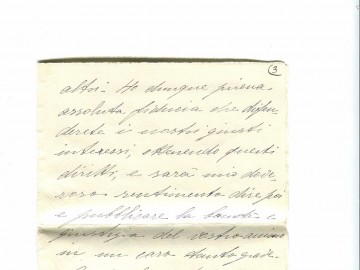 3
altri. Ho dunque piena
assoluta fiducia che difen
derete i nostri giusti
interessi, ottenendo questi
diritti, e sarà mio dove
roso sentimento dire poi
e pubblicare la bontà e
giustizia del vostro animo
in un caso